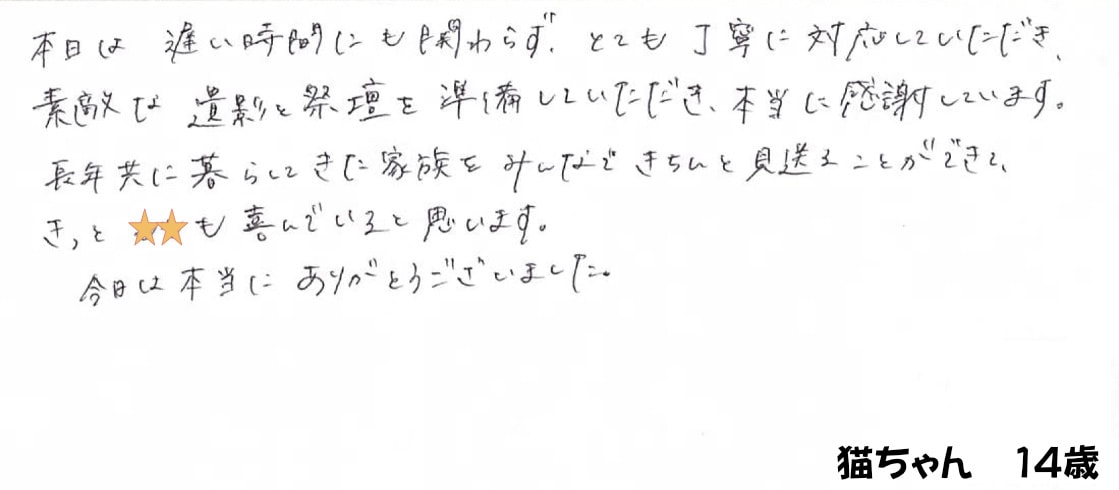 本日は 遅い時間にも関わらず、とても 丁寧に 対応していただき、
素敵な 遺影と祭壇を 準備していただき、本当に感謝しています。
長年共に暮らしてきた家族を みんなで きちんと見送ることができて、
きっと ★★も喜んでいると思います。
今日は本当に ありがとうございました。
猫ちゃん 14歳